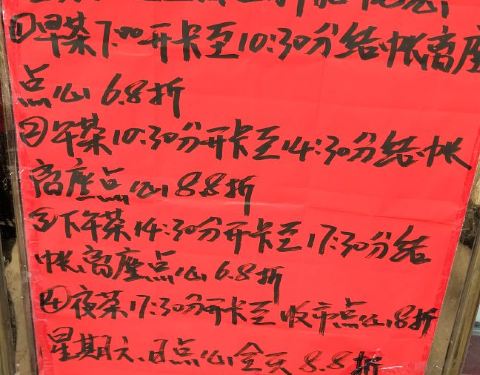 ①早茶7:00开卡至10:30分结帐离座
点心6.8折
②午茶10:30分开卡至14:30分结帐
离座点心8.8折
③下午茶14:30分开卡至17:30分结
帐离座点心6.8折
④夜茶17:30分开卡至收市点心8折
星期六、日点心全天8.8折